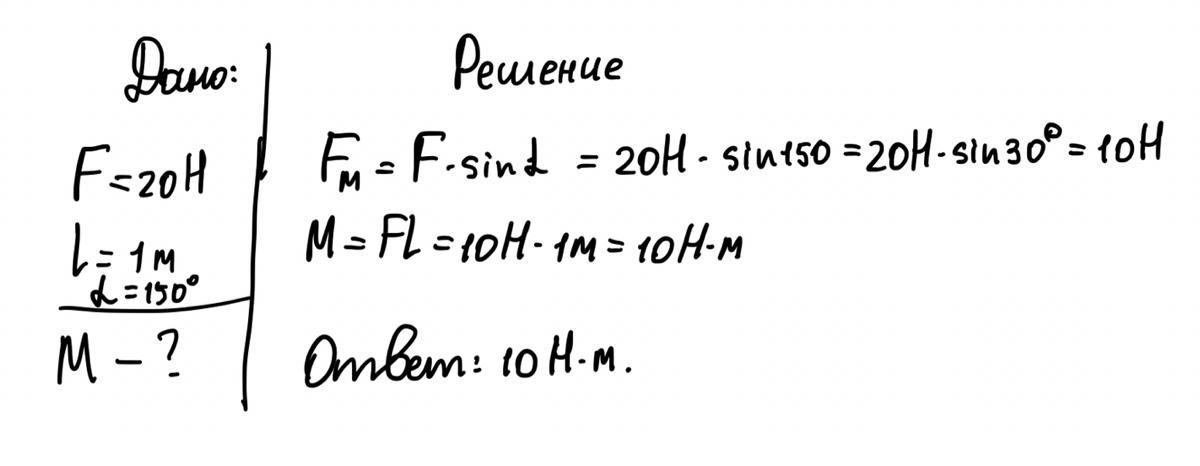 Дано:
F=20Н
L=1м
α=150°
М-?
Решение
Fм=F·sinα=20Н·sin150=20Н·sin30°=10Н
М=FL=10Н·1м=10Н·м
Ответ: 10Н·м.